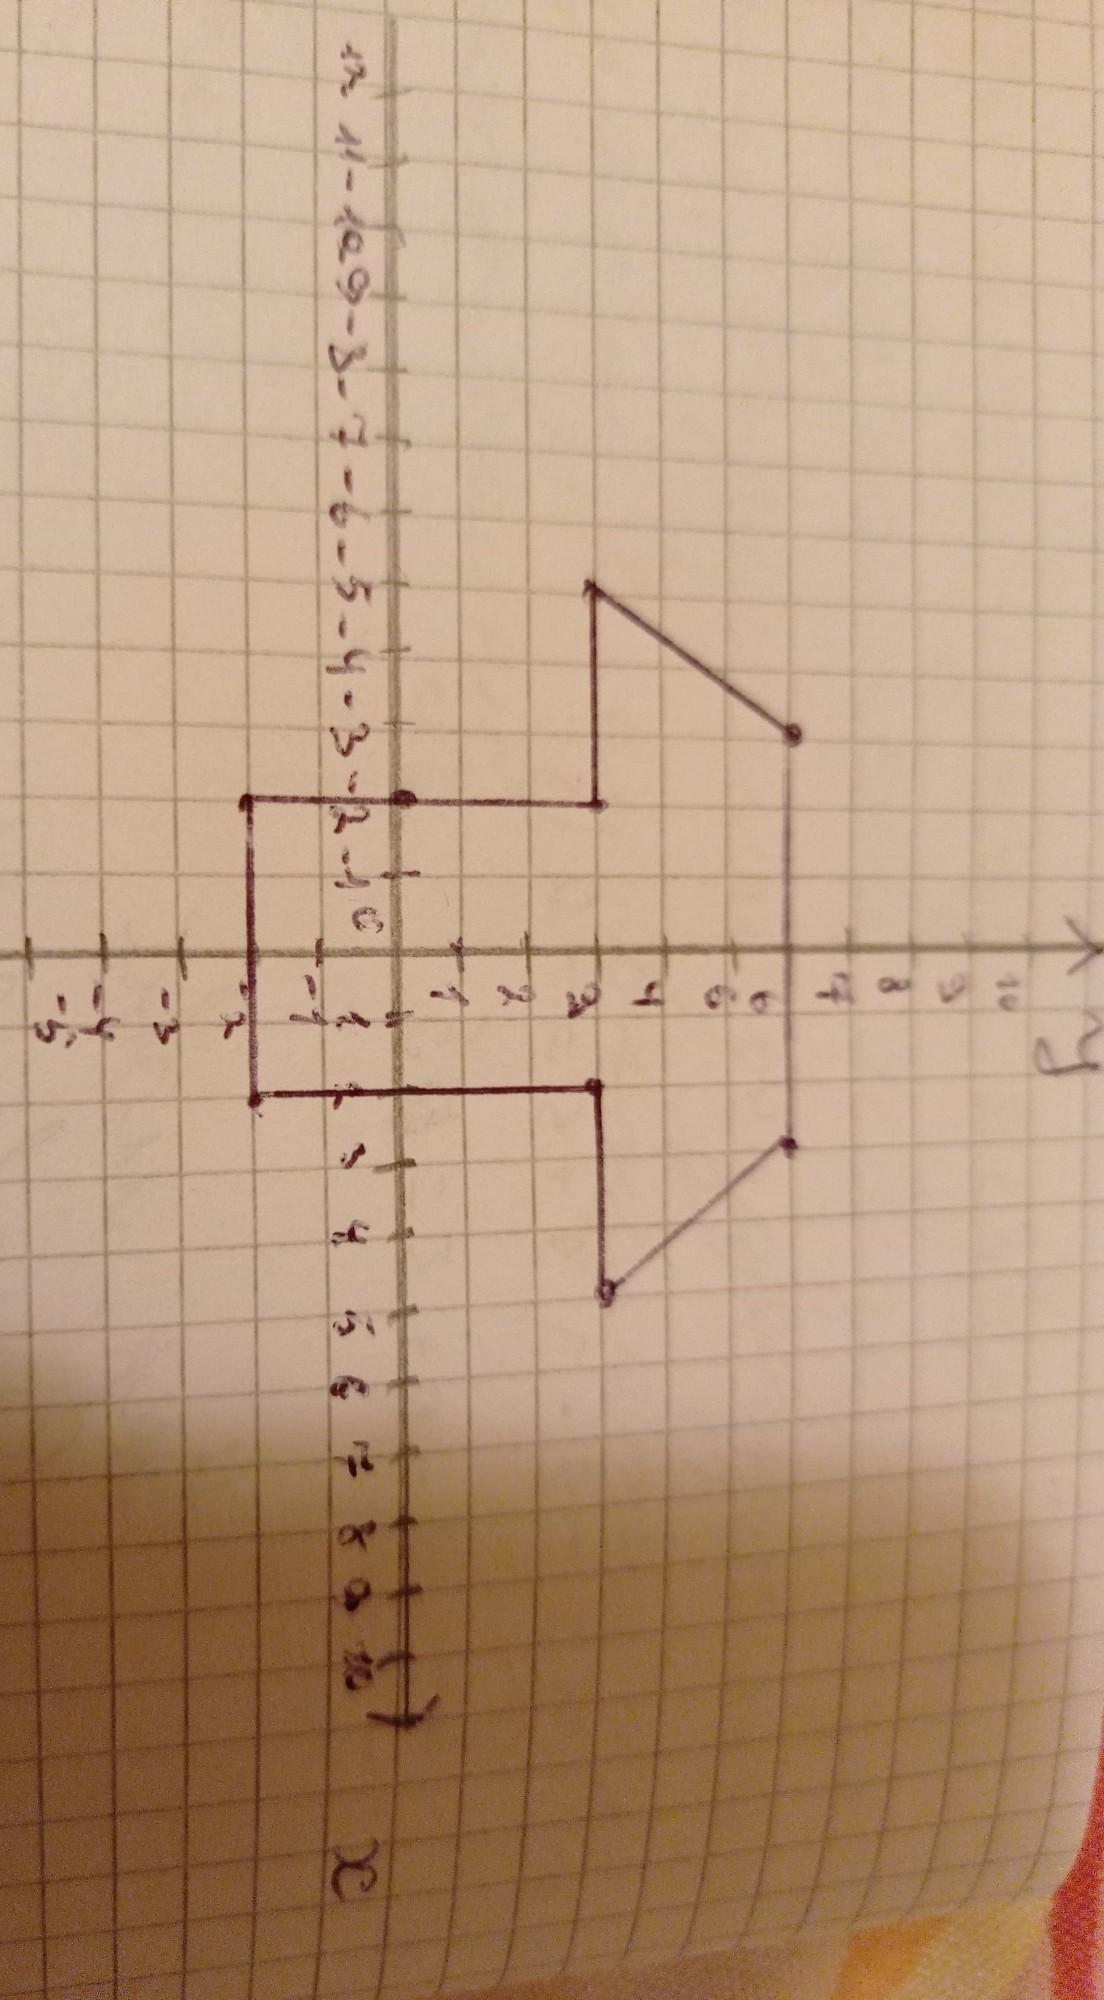 y
10
9
8
7
6
5
4
3
2
1
12 11 -10 9 -8 -7 -6 -5 -4 -3 -2 -1 0 1 2 3 4 5 6 7 8 9 10 x
-1
-2
-3
-4
-5